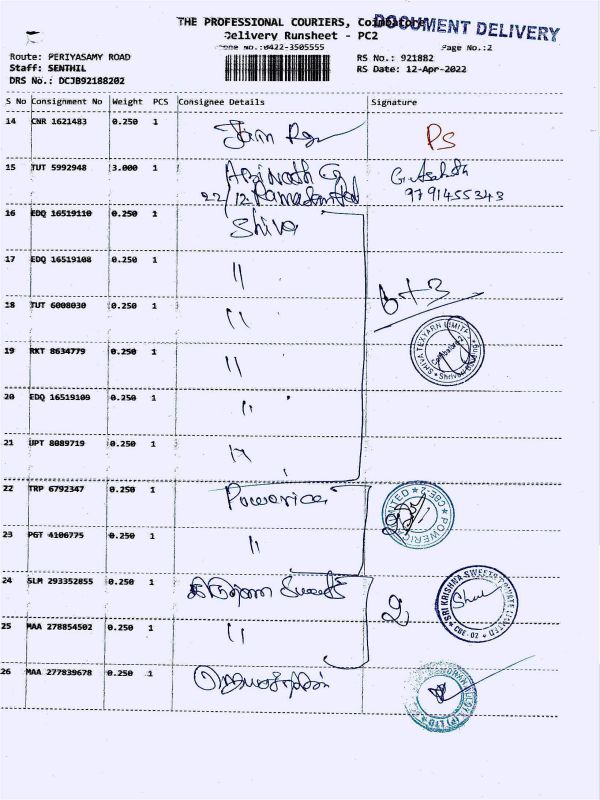 THE PROFESSIONAL COURIERS, Coimbatore
DOCUMENT DELIVERY
Delivery Runsheet - PC2
Phone No.:0422-3505555
Page No.:2
Route: PERIYASAMY ROAD
RS No.: 921882
Staff: SENTHIL
RS Date: 12-Apr-2022
DRS No.: DCJB92188202
S No Consignment No Weight PCS Consignee Details Signature
14 CNR 1621483 0.250 1
PS
15 TUT 5992948 3.000 1
9791455343
16 EDQ 16519110 0.250 1 Shiva
17 EDQ 16519108 0.250 1 "
18 TUT 6008030 0.250 1 "
6+3
19 RKT 8634779 0.250 1 "
SHIVA TEXYARN LIMITED
Coimbatore
20 EDQ 16519109 0.250 1 "
21 UPT 8089719 0.250 1 "
22 TRP 6792347 0.250 1 Powerica
POWERICA LIMITED ★ CBE-2 ★
23 PGT 4106775 0.250 1 "
24 SLM 293352855 0.250 1
2
SRI KRISHNA SWEETS PRIVATE LIMITED
★ CBE - 02 ★
25 MAA 278854502 0.250 1 "
26 MAA 277839678 0.250 1